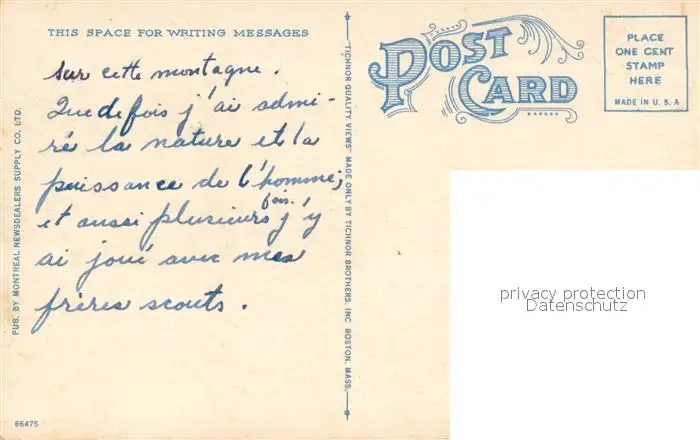 THIS SPACE FOR WRITING MESSAGES
sur cette montagne.
Que de fois j'ai admi-
ré la nature et la
puissance de l'homme;
et aussi plusieurs fois j'y
ai joué avec mes
frères scouts.
PUB. BY MONTREAL NEWSDEALERS SUPPLY CO. LTD.
66475
"TICHNOR QUALITY VIEWS" MADE ONLY BY TICHNOR BROTHERS, INC BOSTON, MASS.
POST
CARD
PLACE
ONE CENT
STAMP
HERE
MADE IN U. S. A
privacy protection
Datenschutz